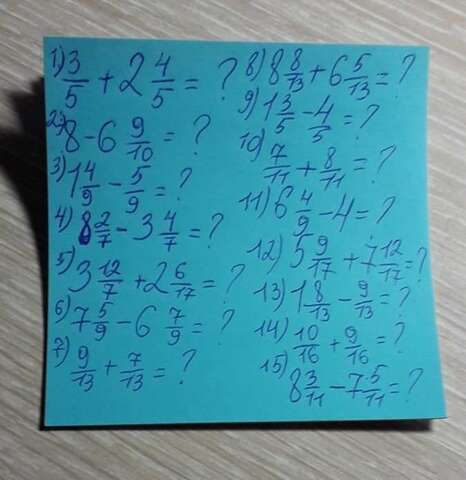 1) 3/5 + 2 4/5 = ?
2) 8 - 6 9/10 = ?
3) 1 4/9 - 5/9 = ?
4) 8 2/7 - 3 4/7 = ?
5) 3 12/7 + 2 6/17 = ?
6) 7 5/9 - 6 7/9 = ?
7) 9/13 + 7/13 = ?
8) 8 8/13 + 6 5/13 = ?
9) 1 3/5 - 4/5 = ?
10) 7/11 + 8/11 = ?
11) 6 4/9 - 4 = ?
12) 5 9/17 + 7 12/17 = ?
13) 1 8/13 - 9/13 = ?
14) 10/16 + 9/16 = ?
15) 8 3/11 - 7 5/11 = ?